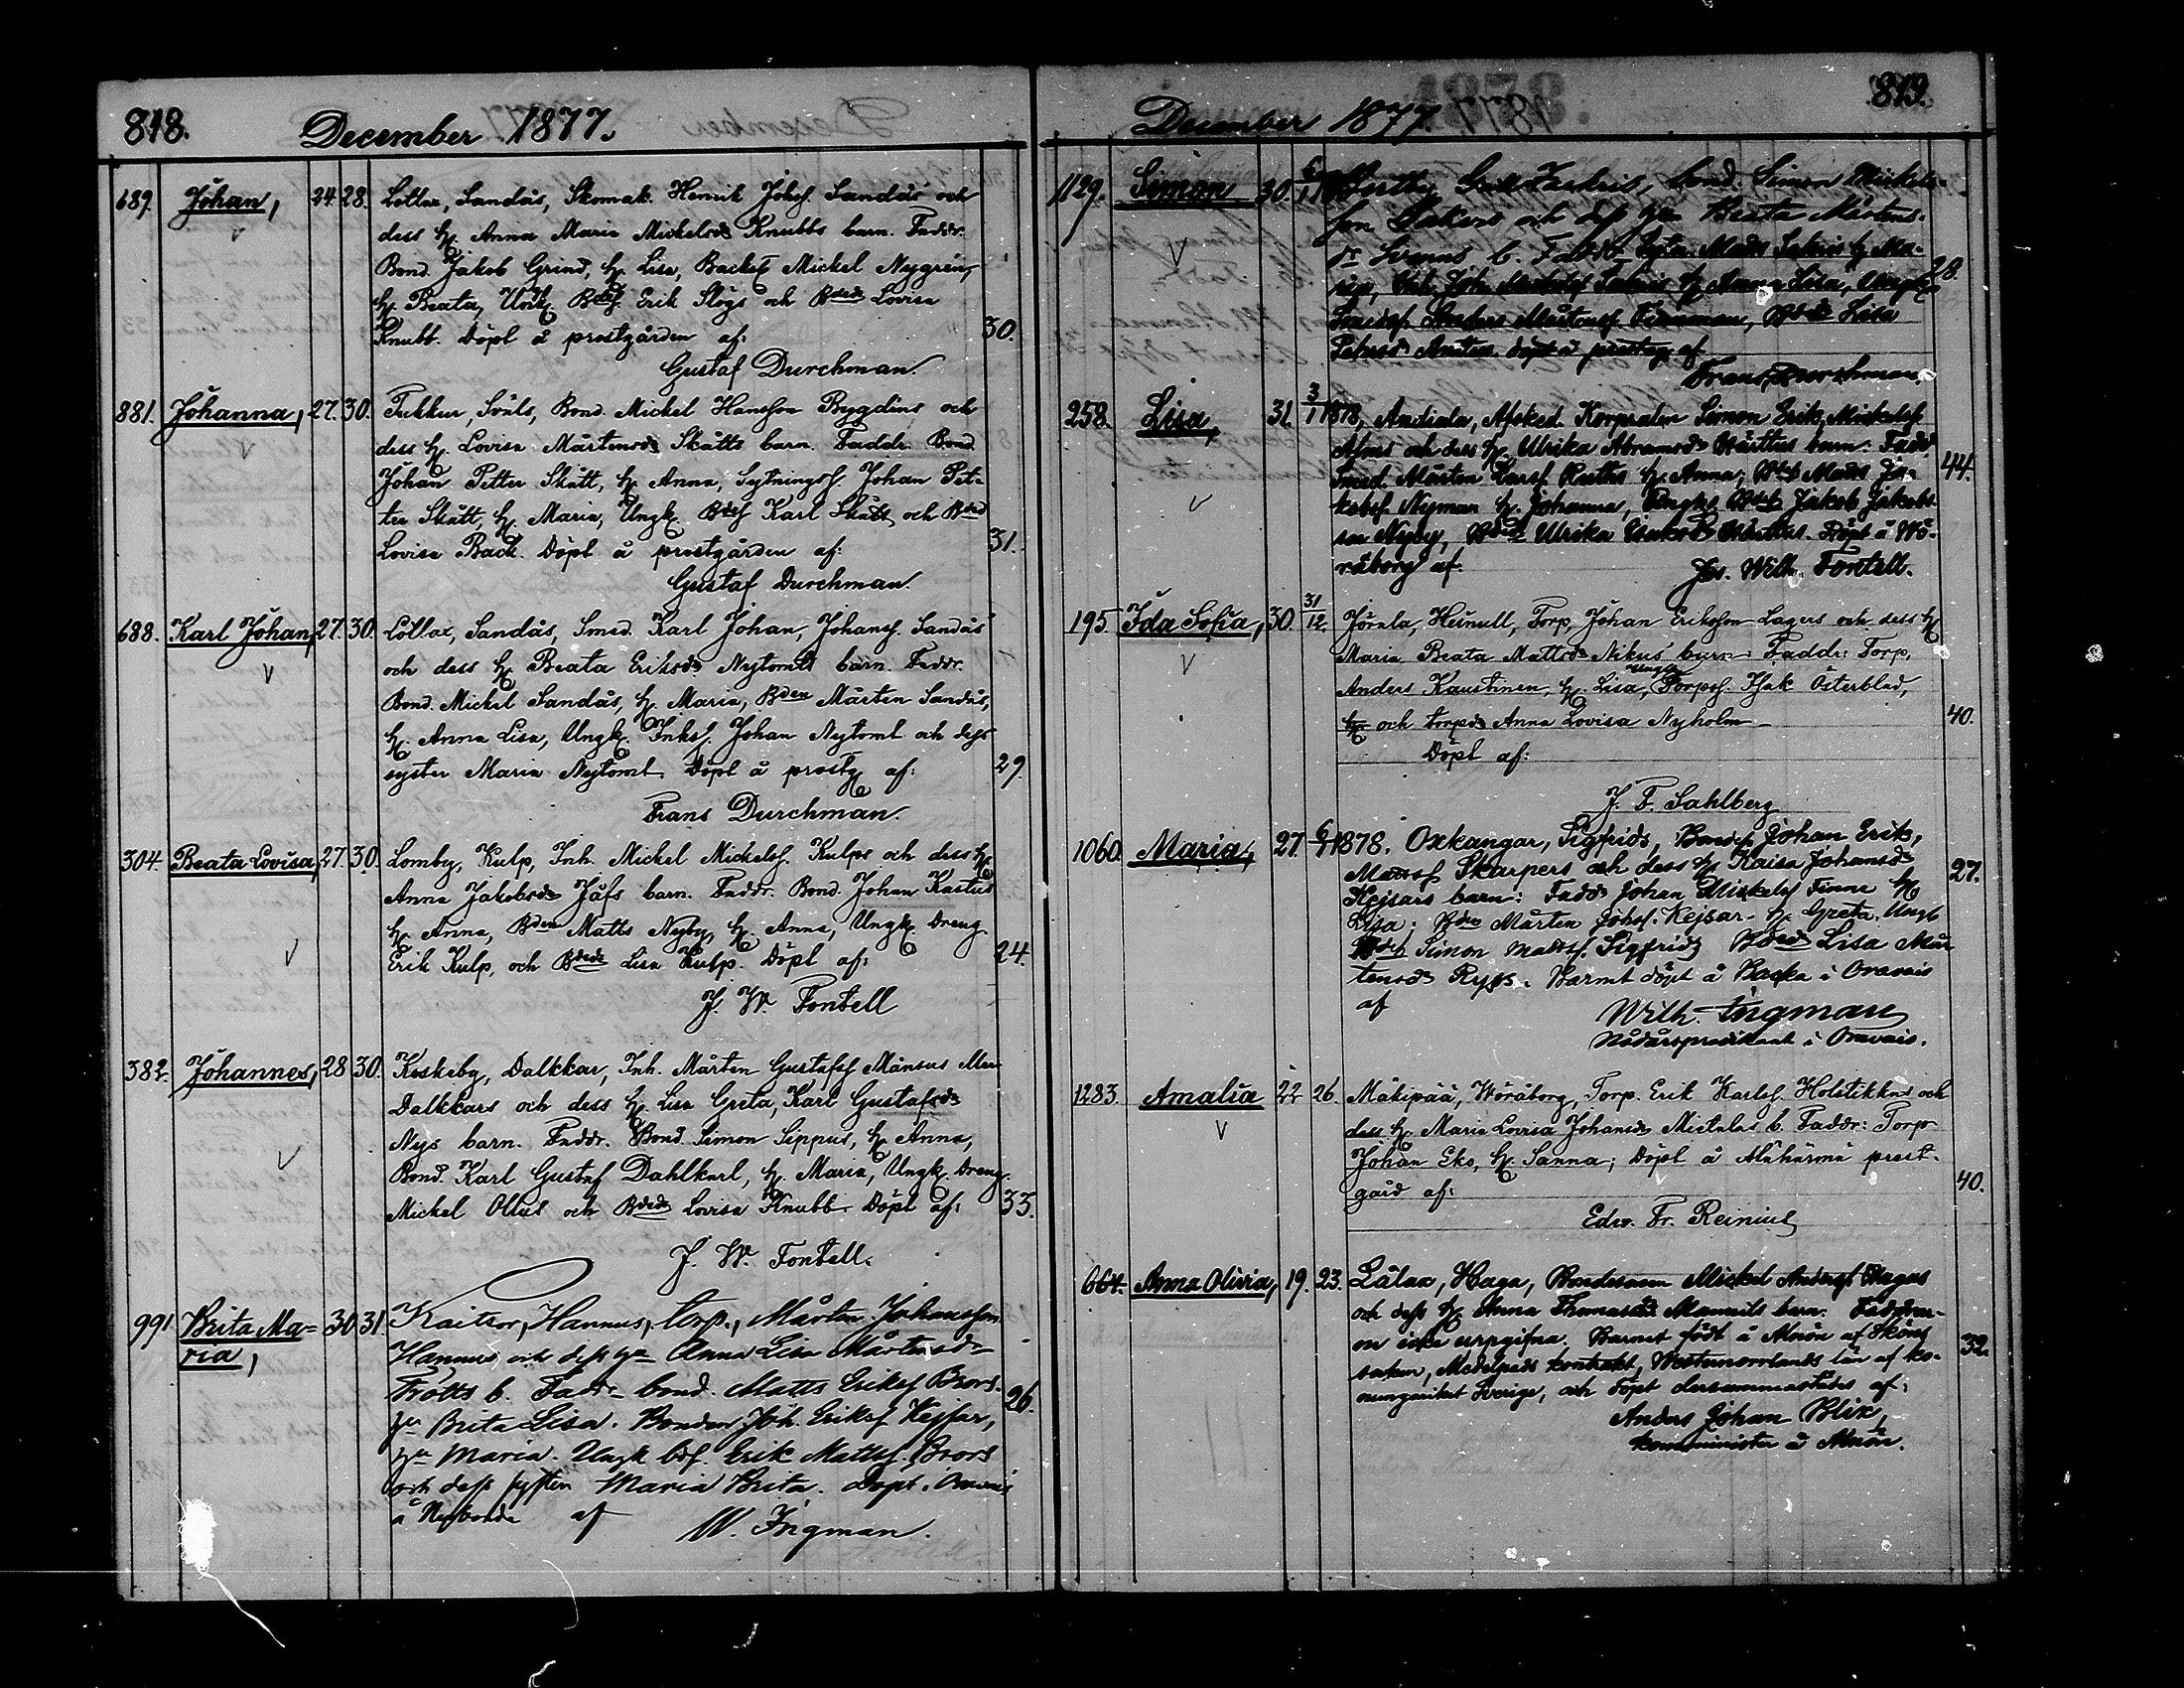 818.
December 1877.
689. Johan, 24. 28. Lottax, Sandås, Skomak. Henrik Johsf. Sandås och
dess h. Anna Maria Mickelsdr Knubbs barn. Faddr.
Bond. Jakob Grind, h. Lisa, Mickel Nygrén,
h. Beata, Ungk. Bdes. Erik Slögs och Bdedr Lovisa
Knubb. Döpt å prostgården af: 30.
Gustaf Durchman.
881. Johanna, 27. 30. Tukkur, Svåls, Bond. Mickel Hansson Bygdins och
dess h. Lovisa Mårtensdr Skåtts barn. Faddr. Bond.
Johan Petter Skått, h. Anna, Sytningsf. Johan Pet-
ter Skått, h. Maria, Ungk. Bdes Karl Skått och Bded
Lovisa Back. Döpt å prostgården af: 31.
Gustaf Durchman.
688. Karl Johan, 27. 30. Lottax, Sandås, Smed. Karl Johan, Johansf. Sandås
och dess h. Beata Eriksdr Nytomts barn. Faddr.
Bond. Mickel Sandås, h. Maria, Bden Mårten Sandås,
h. Anna Lisa, Ungk. Inhsf. Johan Nytomt och dess
syster Maria Nytomt. Döpt å prostg. af: 29
Frans Durchman.
304. Beata Lovisa, 27. 30. Lomby, Kulp, Inh. Mickel Mickelsf. Kulps och dess h.
Anna Jakobsdr Jåfs barn. Faddr. Bond. Johan Kastus
h. Anna, Bden Matts Nyby, h. Anna, Ungk. Dreng
Erik Kulp, och Bdedr Lisa Kulp. Döpt af: 24.
J. W. Fontell
382. Johannes, 28 30. Keskeby, Dalkkar, Inh. Mårten Gustafsf Månsus
Dalkkars och dess h. Lisa Greta, Karl Gustafsdr
Nys barn. Faddr. Bond. Simon Sippus, h. Anna,
Bond. Karl Gustaf Dahlkarl, h. Maria, Ungk. Dreng.
Mickel Ollus och Bdedr Lovisa Knubb. Döpt af: 33.
J. W. Fontell.
991 Brita Ma= 30 31 Kaitsor, Hannus, torp., Mårten Johansson
ria, Hannus och dess Anna Lisa Mårtensdr
Trötts b. Faddr bond. Matts Eriksf Brors.
Brita Lisa. Bonden Joh. Eriksf Kejsar, 26.
Maria. Ungk bdsf. Erik Mattsf. Brors
och dess systern Maria Brita. Döpt i Oravais
å Nybonde af W. Ingman.
819.
December 1877.
1129. Simon 30. 6/1 bond. Simon Mickels-
son och dess Beata Mårtens-
b. Mats h. Ma-
h. Anna Lisa, Ungk. 28.
Anders Mårtensf Lisa
döpt å prostg af
Frans Durchman.
258. Lisa, 31. 3/1 1878, Andiala, Afsked. Korpralen Simon Erik Mickelsf
och dess h. Ulrika Abramsdr barn. Fadd.
Smed. Mårten Larsf. h. Anna, Mats Ja- 44.
kobsf. Nyman h. Johanna, Ungk. Jakob Jakobs-
son Nyby, Ulrika Döpt å Wö-
råborg af. Joh. Wilh. Fontell.
195. Ida Sofia, 30. 31/12. Jörala, Heinull, Torp, Johan Eriksson Lagers och dess h
Maria Beata Mattsdr Nikus barn. Faddr: Torp,
Anders Kaustinen, h. Lisa, Ungk. Torpsf. Isak Österblad,
h. och torpdr Anna Lovisa Nyholm 40.
Döpt af:
J. F. Sahlberg
1060. Maria, 27. 6/1 1878. Oxkangar, Sigfrids, Johan Erik,
Mattsf Skarpers och dess h. Kaisa Johansdr 27.
Kejsars barn: Fadd Johan Mickelsf Finne h.
Lisa; Bden Mårten Johsf. Kejsar h. Greta, Ungk
Simon Mattsf. Sigfrids Lisa Mår
tensdr Ryss. Barnet döpt å Backa i Oravais
af Wilh. Ingman
Nådårspredikant i Oravais.
1283. Amalia 22 26. Mäkipää, Wöråborg, Torp. Erik Karlsf. Holstikkus och
dess h. Maria Lovisa Johansdr Mietalas b. Faddr: Torp
Johan Eks, h. Sanna; Döpt å Alahärmä prest-
gård af: 40.
Edw. Fr. Reinius
664. Anna Olivia, 19. 23. Lålax, Haga, Bondesonen Mickel Andersf Hagas
och dess h. Anna Thomasdr Mannils barn. Faddrar-
ne icke uppgifna. Barnet födt å Alnön af Sköns 32.
socken, Medelpads kontrakt, Westernorrlands län af ko-
nungariket Sverige, och döpt dersammastädes af:
Anders Johan Blix,
komminister å Alnön.